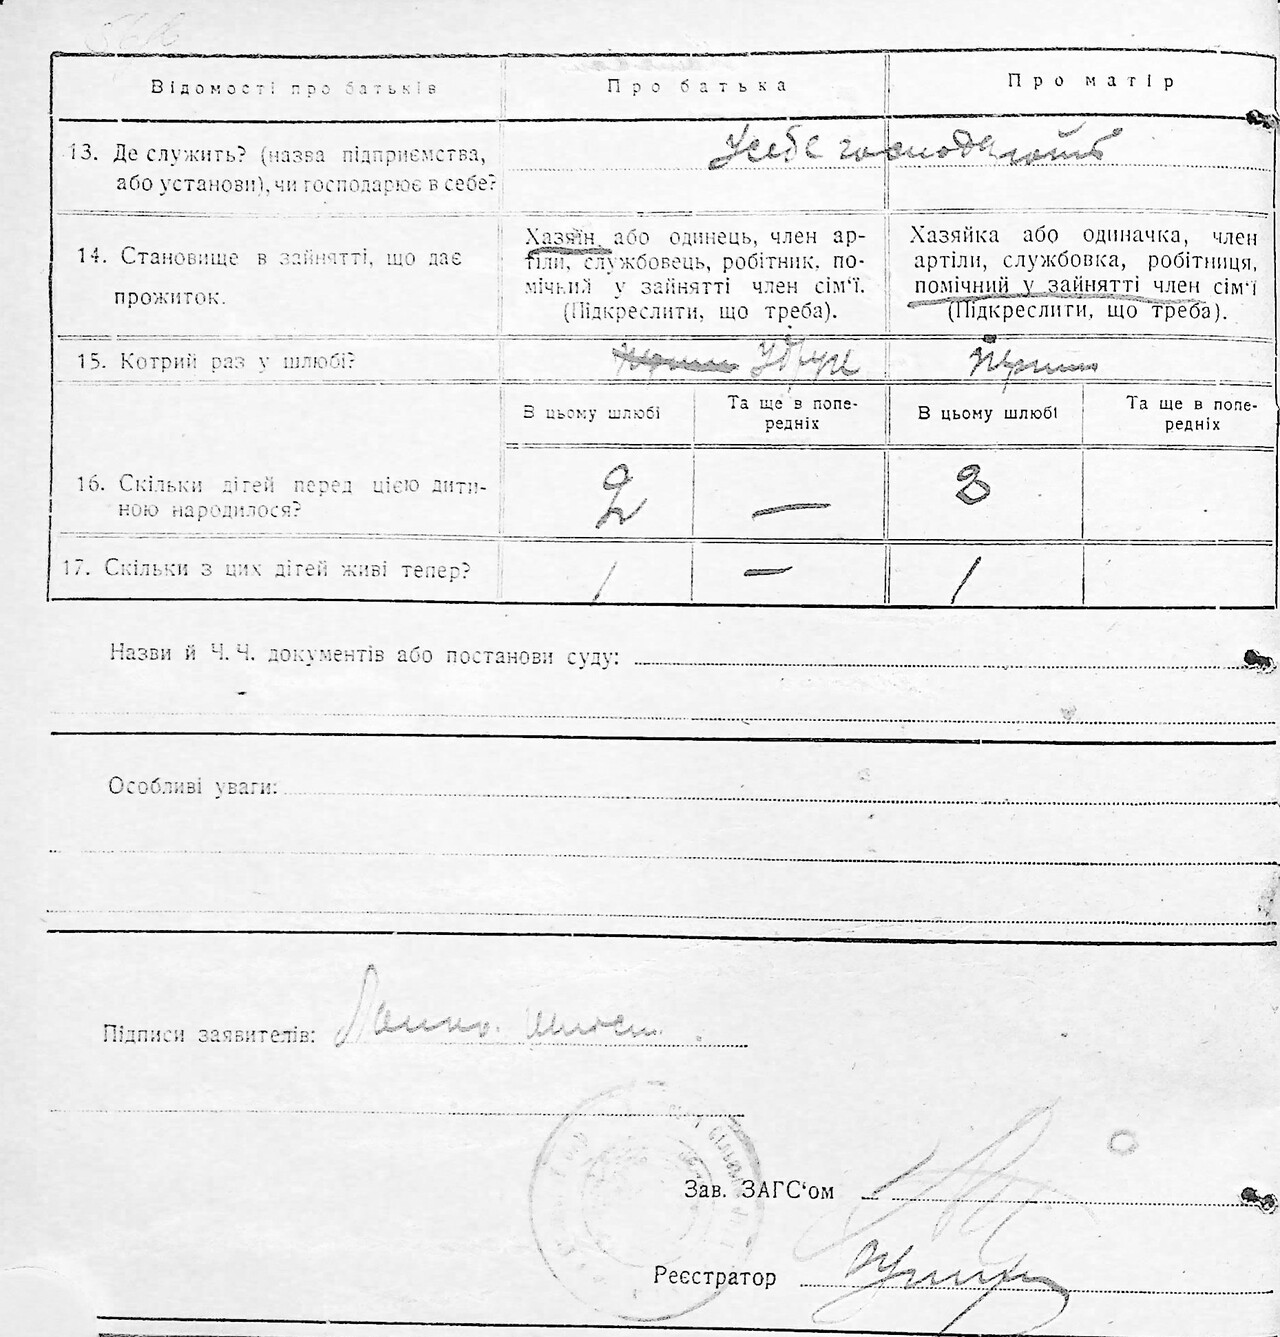 Відомості про батьків
Про батька
Про матір
13. Де служить? (назва підприємства,
або установи), чи господарює в себе?
У себе господарюють
14. Становище в зайнятті, що дає
прожиток.
Хазяїн, або одинець, член ар-
тіли, службовець, робітник, по-
мічний у зайнятті член сім‘ї.
(Підкреслити, що треба).
Хазяйка або одиначка, член
артіли, службовка, робітниця,
помічний у зайнятті член сім‘ї
(Підкреслити, що треба).
15. Котрий раз у шлюбі?
16. Скільки дітей перед цією дити-
ною народилося?
В цьому шлюбі
Та ще в попе-
редніх
В цьому шлюбі
Та ще в попе-
редніх
2 — 3
17. Скільки з цих дітей живі тепер?
1 — 1
Назви й Ч. Ч. документів або постанови суду:
Особливі уваги:
Підписи заявителів:
Зав. ЗАГС‘ом
Реєстратор